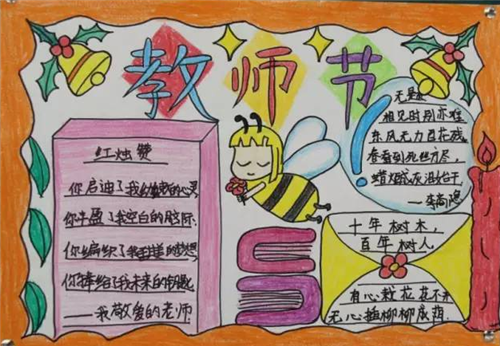 教师节
红烛赞
你启迪了我幼稚的心灵
你丰盈了我空白的脑际
你编织了我的梦想
你捧给了我未来的
——我敬爱的老师
无题
相见时别亦难
东风无力百花残
春蚕到死丝方尽，
蜡炬成灰泪始干
——李商隐
十年树木，
百年树人
有心栽花花不开
无心插柳柳成荫